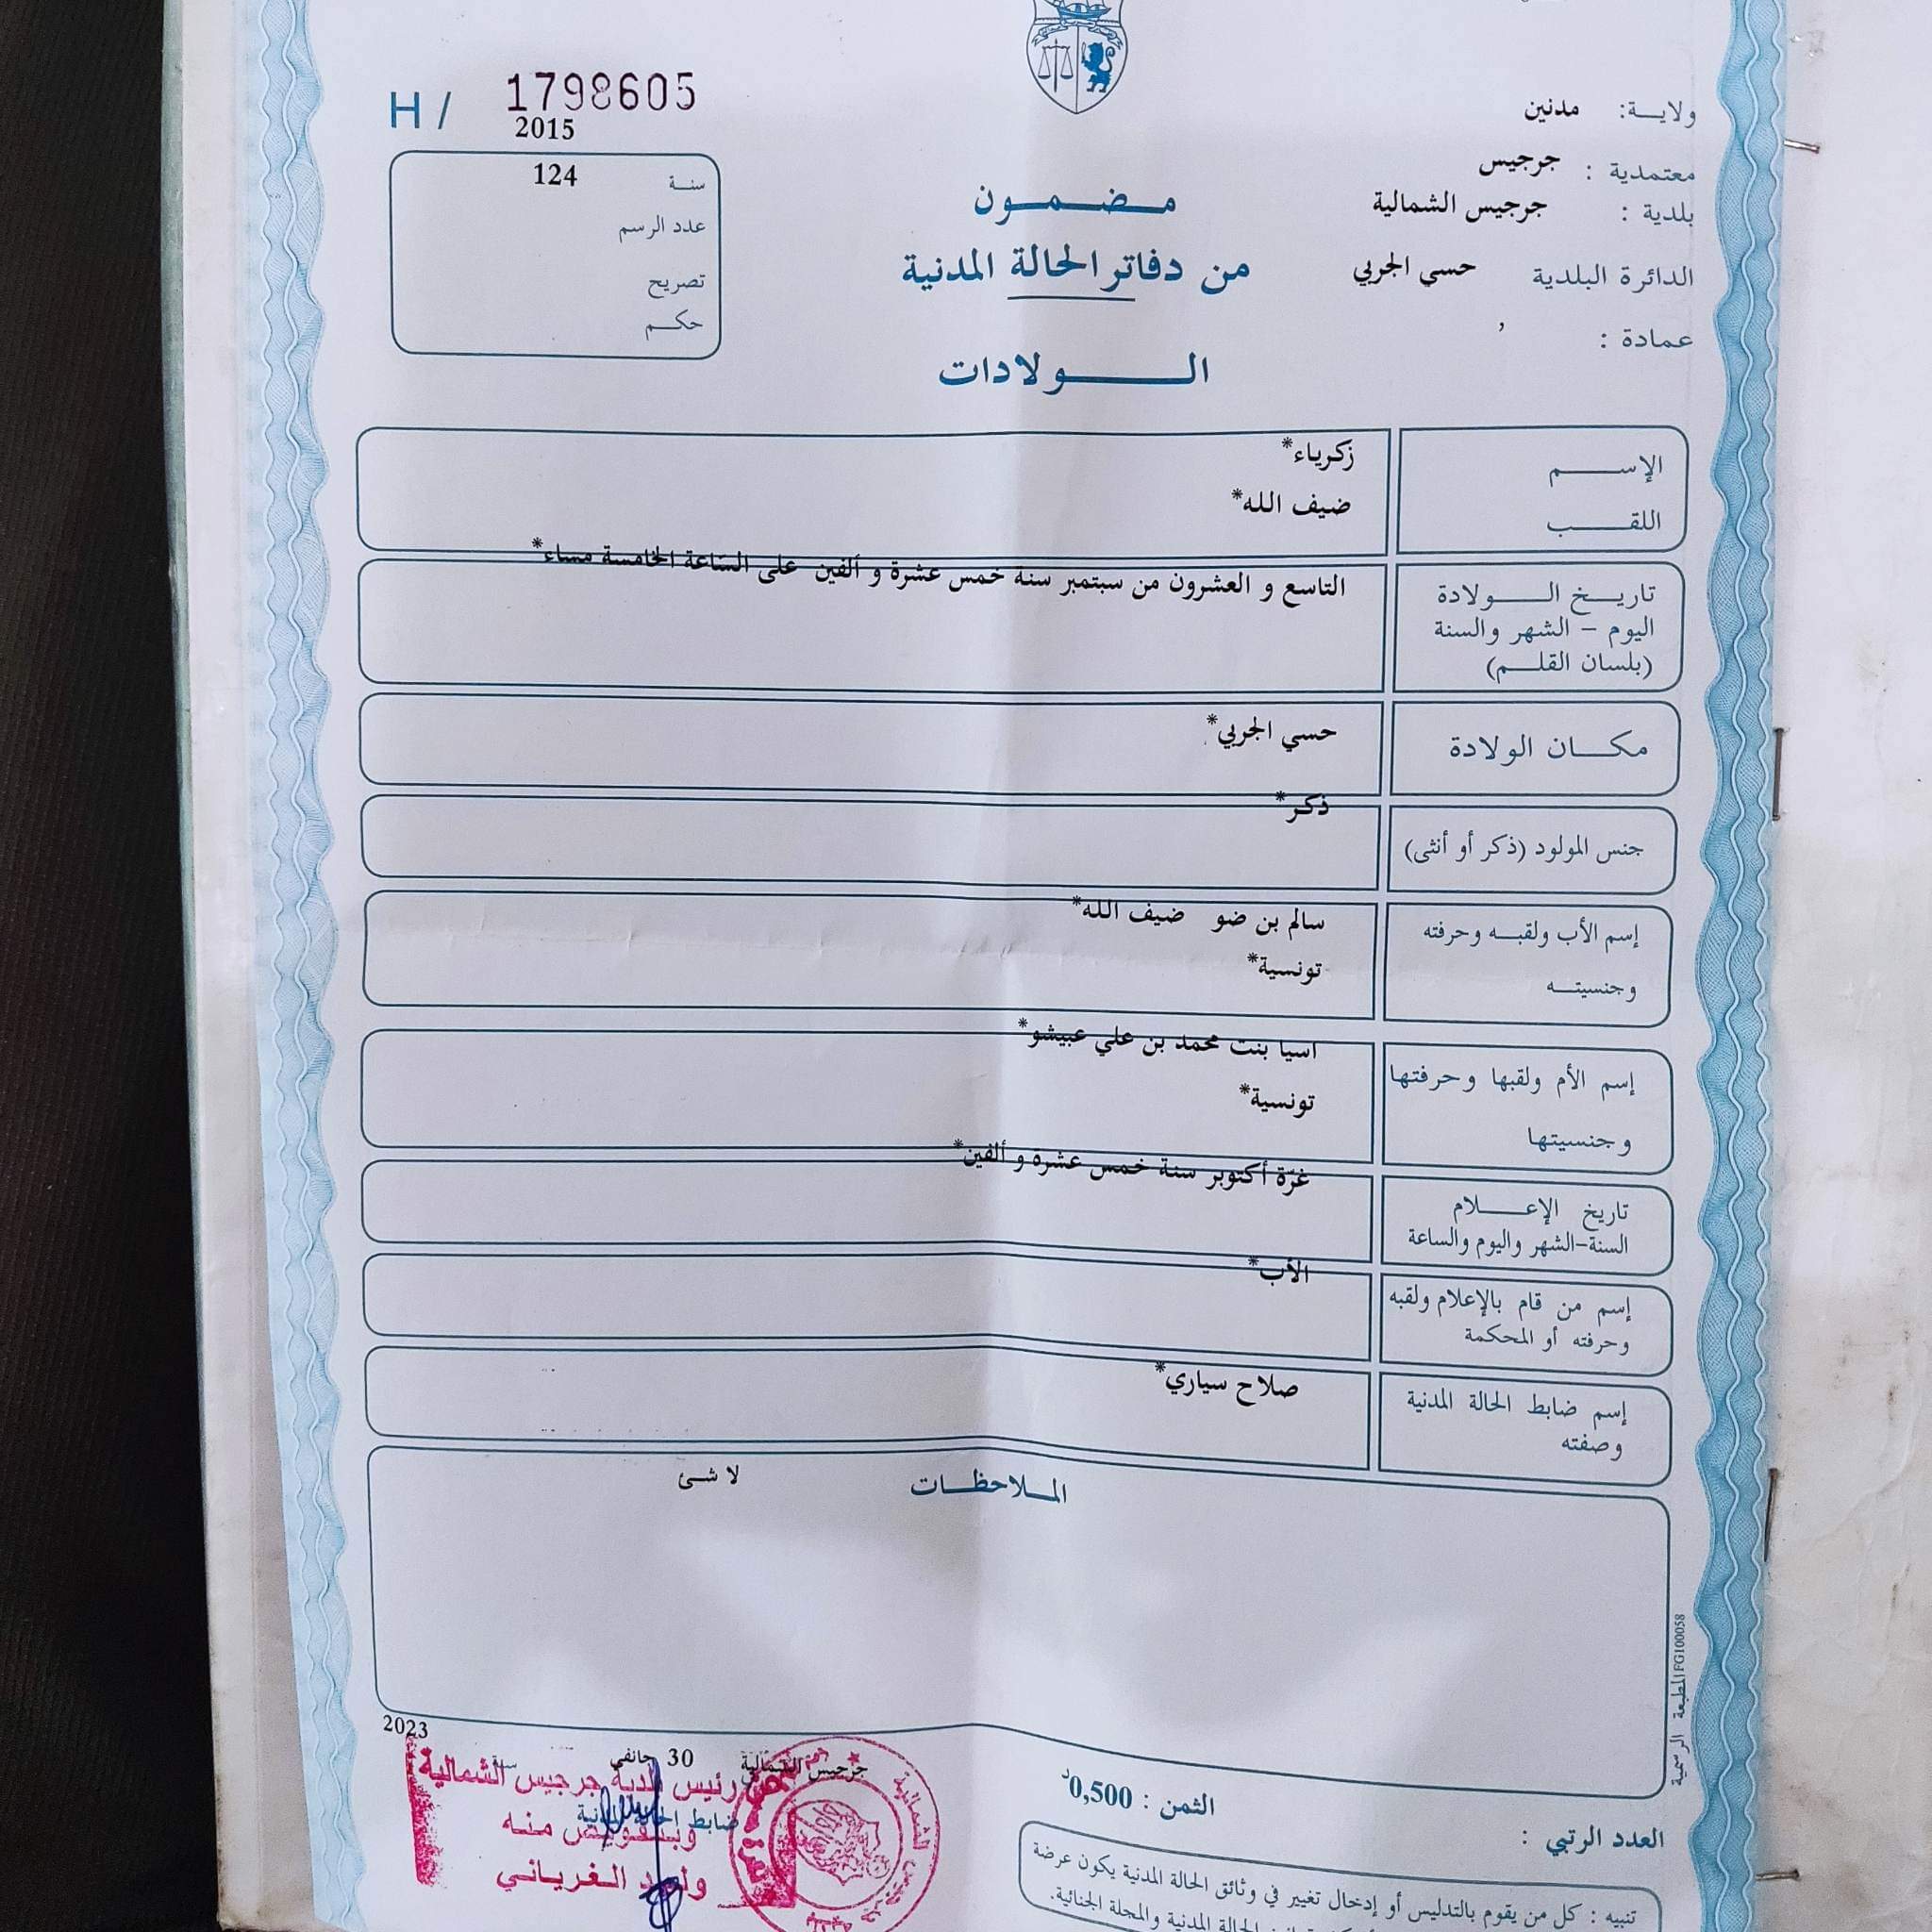 H / 1798605
2015
سنة 124
عدد الرسم
تصريح
حكم
ولاية: مدنين
معتمدية : جرجيس
بلدية : جرجيس الشمالية
الدائرة البلدية حسى الجربي
عمادة :
مضمون
من دفاتر الحالة المدنية
الولادات
الإسم زكرياء*
اللقب ضيف الله*
تاريخ الولادة
اليوم – الشهر والسنة
(بلسان القلم)
التاسع و العشرون من سبتمبر سنة خمس عشرة و ألفين على الساعة الخامسة مساء*
مكان الولادة حسي الجربي*
جنس المولود (ذكر أو أنثى) ذكر*
إسم الأب ولقبه وحرفته سالم بن ضو ضيف الله*
وجنسيته تونسية*
إسم الأم ولقبها وحرفتها اسيا بنت محمد بن علي عبيشو*
وجنسيتها تونسية*
تاريخ الإعلام
السنة-الشهر واليوم والساعة
غرّة أكتوبر سنة خمس عشرة و ألفين*
إسم من قام بالإعلام ولقبه
وحرفته أو المحكمة
الأب*
إسم ضابط الحالة المدنية
وصفته
صلاح سياري*
الملاحظات لا شئ
المطبعة الرسمية FG100058
جرجيس الشمالية 30 جانفي سنة 2023
ضابط الحالة المدنية
رئيس بلدية جرجيس الشمالية
وبتفويض منه
وليد الغرياني
الثمن : 0,500د
العدد الرتبي :
تنبيه : كل من يقوم بالتدليس أو إدخال تغيير في وثائق الحالة المدنية يكون عرضة
الحالة المدنية والمجلة الجنائية.